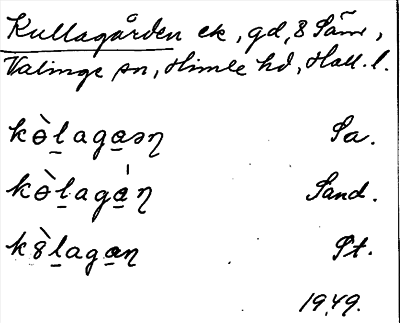 Kullagården ek, gd, 8 Sämr,
Valinge sn, Himle hd, Hall. l.
kò̱lagaən Sa.
kò̱lagá̱n Sand.
k8̀lagan St.
1949.